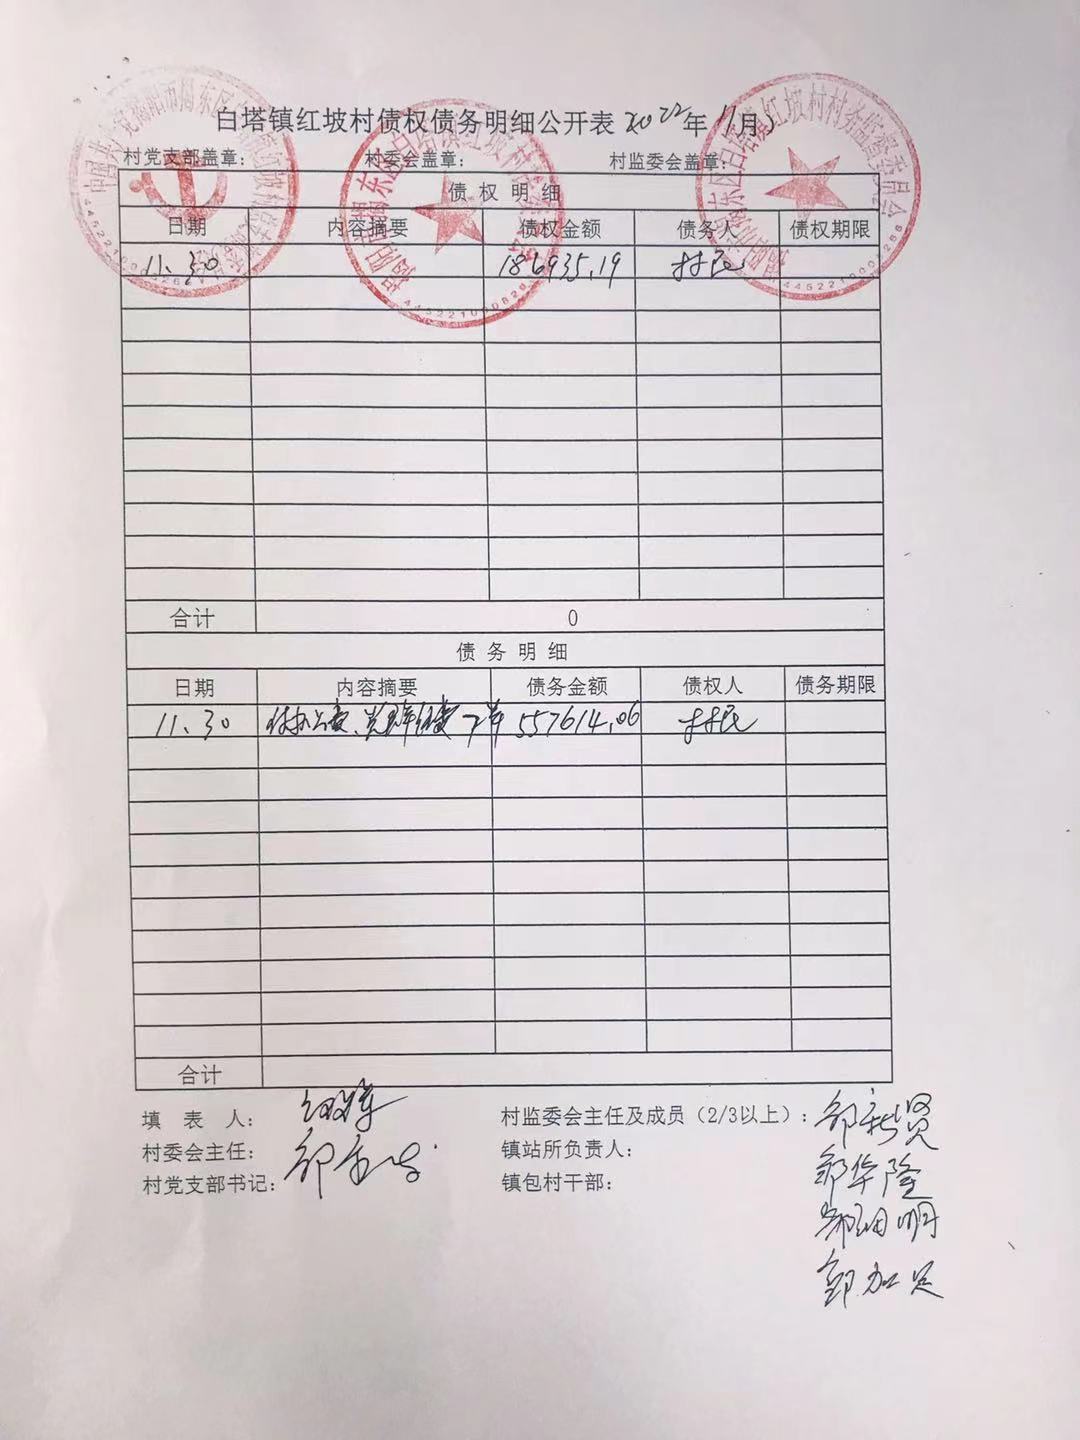 白塔镇红坡村债权债务明细公开表 2022年 11月
村党支部盖章： 村委会盖章： 村监委会盖章：
债 权 明 细
日期 内容摘要 债权金额 债务人 债权期限
11.30 186935.19 村民
合计 0
债 务 明 细
日期 内容摘要 债务金额 债权人 债务期限
11.30 557614.06 村民
合计
填 表 人： 村监委会主任及成员（2/3以上）： 邹新贤
村委会主任： 镇站所负责人：
村党支部书记： 镇包村干部： 邹华隆
明
邹加足